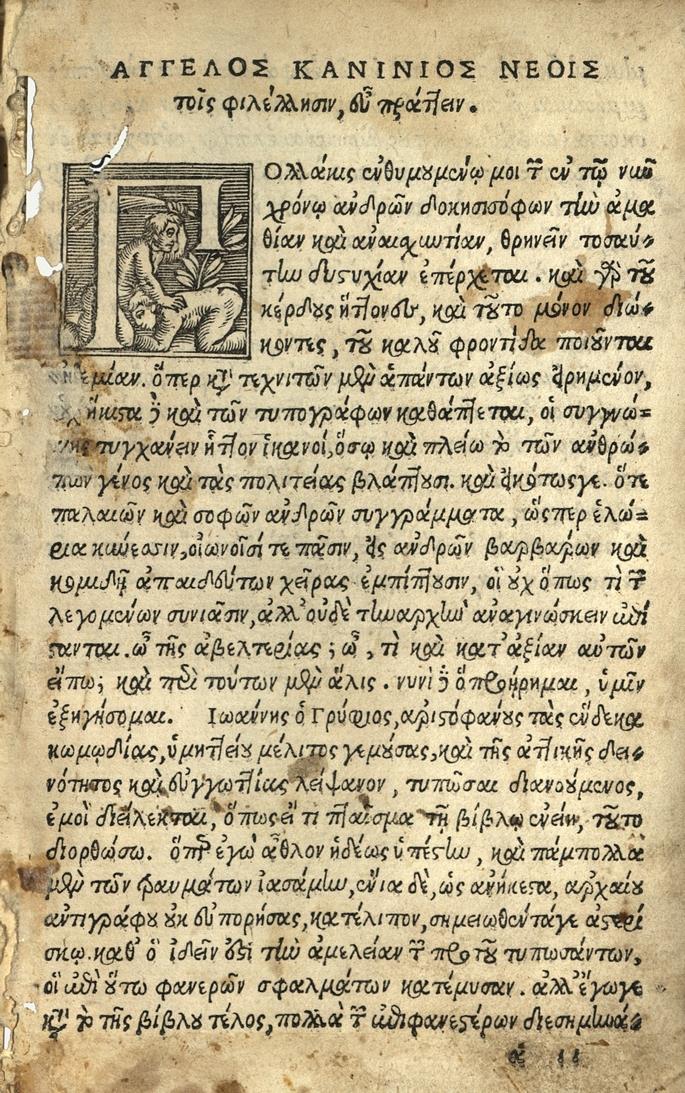 ΑΓΓΕΛΟΣ ΚΑΝΙΝΙΟΣ ΝΕΟΙΣ
τοῖς φιλέλλησιν, εὖ πράττειν.
Πολλάκις ἐνθυμουμένῳ μοι τῶν ἐν τῷ νῦν
χρόνῳ ἀνδρῶν δοκησισόφων τὴν ἀμα
θίαν καὶ ἀναισχυντίαν, θρηνεῖν τοσαύ-
την δυστυχίαν ἐπέρχεται. καὶ γὰρ τοῦ
κέρδους ἥττονες, καὶ τοῦτο μόνον διώ-
κοντες, τοῦ καλοῦ φροντίδα ποιοῦνται
οὐδεμίαν. ὅπερ κατὰ τεχνιτῶν μὲν ἁπάντων ἀξίως εἰρημένον,
οὐχ ἥκιστα δὲ καὶ τῶν τυπογράφων καθάπτεται, οἱ συγγνώ-
μης τυγχάνειν ἧττον ἱκανοί, ὅσῳ καὶ πλείω τὸ τῶν ἀνθρώ-
πων γένος καὶ τὰς πολιτείας βλάπτουσι. καὶ εἰκότως γε. ὅτε
παλαιῶν καὶ σοφῶν ἀνδρῶν συγγράμματα, ὥσπερ ἑλώ-
ρια κύνεσσιν, οἰωνοῖσί τε πᾶσιν, εἰς ἀνδρῶν βαρβάρων καὶ
κομιδῇ ἀπαιδεύτων χεῖρας ἐμπίπτουσιν, οἳ οὐχ ὅπως τὶ τῶν
λεγομένων συνιᾶσιν, ἀλλ' οὐδὲ τὴν ἀρχὴν ἀναγινώσκειν ἐπί
στανται. ὢ τῆς ἀβελτερίας; ὢ, τὶ καὶ κατ' ἀξίαν αὐτῶν
εἴπω; καὶ περὶ τούτων μὲν ἅλις. νυνὶ δὲ ὃ προῄρημαι, ὑμῖν
ἐξηγήσομαι. Ἰωάννης ὁ Γρύφιος, ἀριστοφάνους τὰς ἕνδεκα
κωμῳδίας, ὑμηττείου μέλιτος γεμούσας, καὶ τῆς ἀττικῆς δει-
νότητος καὶ εὐγλωττίας λείψανον, τυπῶσαι διανοούμενος,
ἐμοὶ διείλεκται, ὅπως εἴ τι πταῖσμα τῇ βίβλῳ ἐνείη, τοῦτο
διορθώσω. ὅπερ ἐγὼ ἆθλον ἡδέως ὑπέστην, καὶ πάμπολλα
μὲν τῶν τραυμάτων ἰασάμην, ἔνια δὲ, ὡς ἀνήκεστα, ἀρχαίου
ἀντιγράφου οὐκ εὐπορήσας, κατέλιπον, σημειωθέντα γε ἀστερί
σκῳ. καθ' ὃ ἰδεῖν ἐστὶ τὴν ἀμέλειαν τῶν πρὸ τοῦ τυπωσάντων,
οἳ ἐπὶ οὕτω φανερῶν σφαλμάτων κατέμυσαν. ἀλλ' ἔγωγε
κατὰ τὸ τῆς βίβλου τέλος, πολλὰ τῶν ἐπιφανεστέρων διεσημηνά-